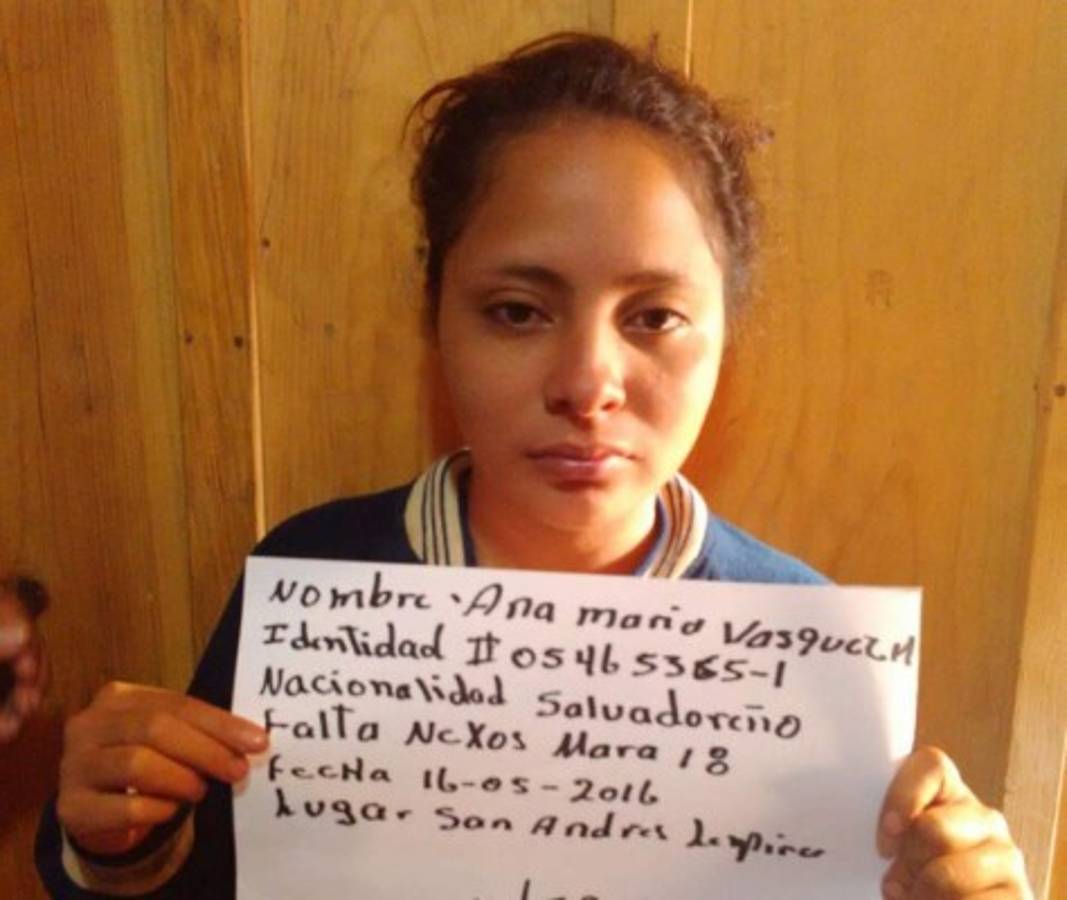 Nombre . Ana maria Vasquez M
Identidad # 05465365-1
Nacionalidad Salvadoreño
Falta Nexos Mara 18
fecHa 16-05-2016
Lugar San Andres Lempira